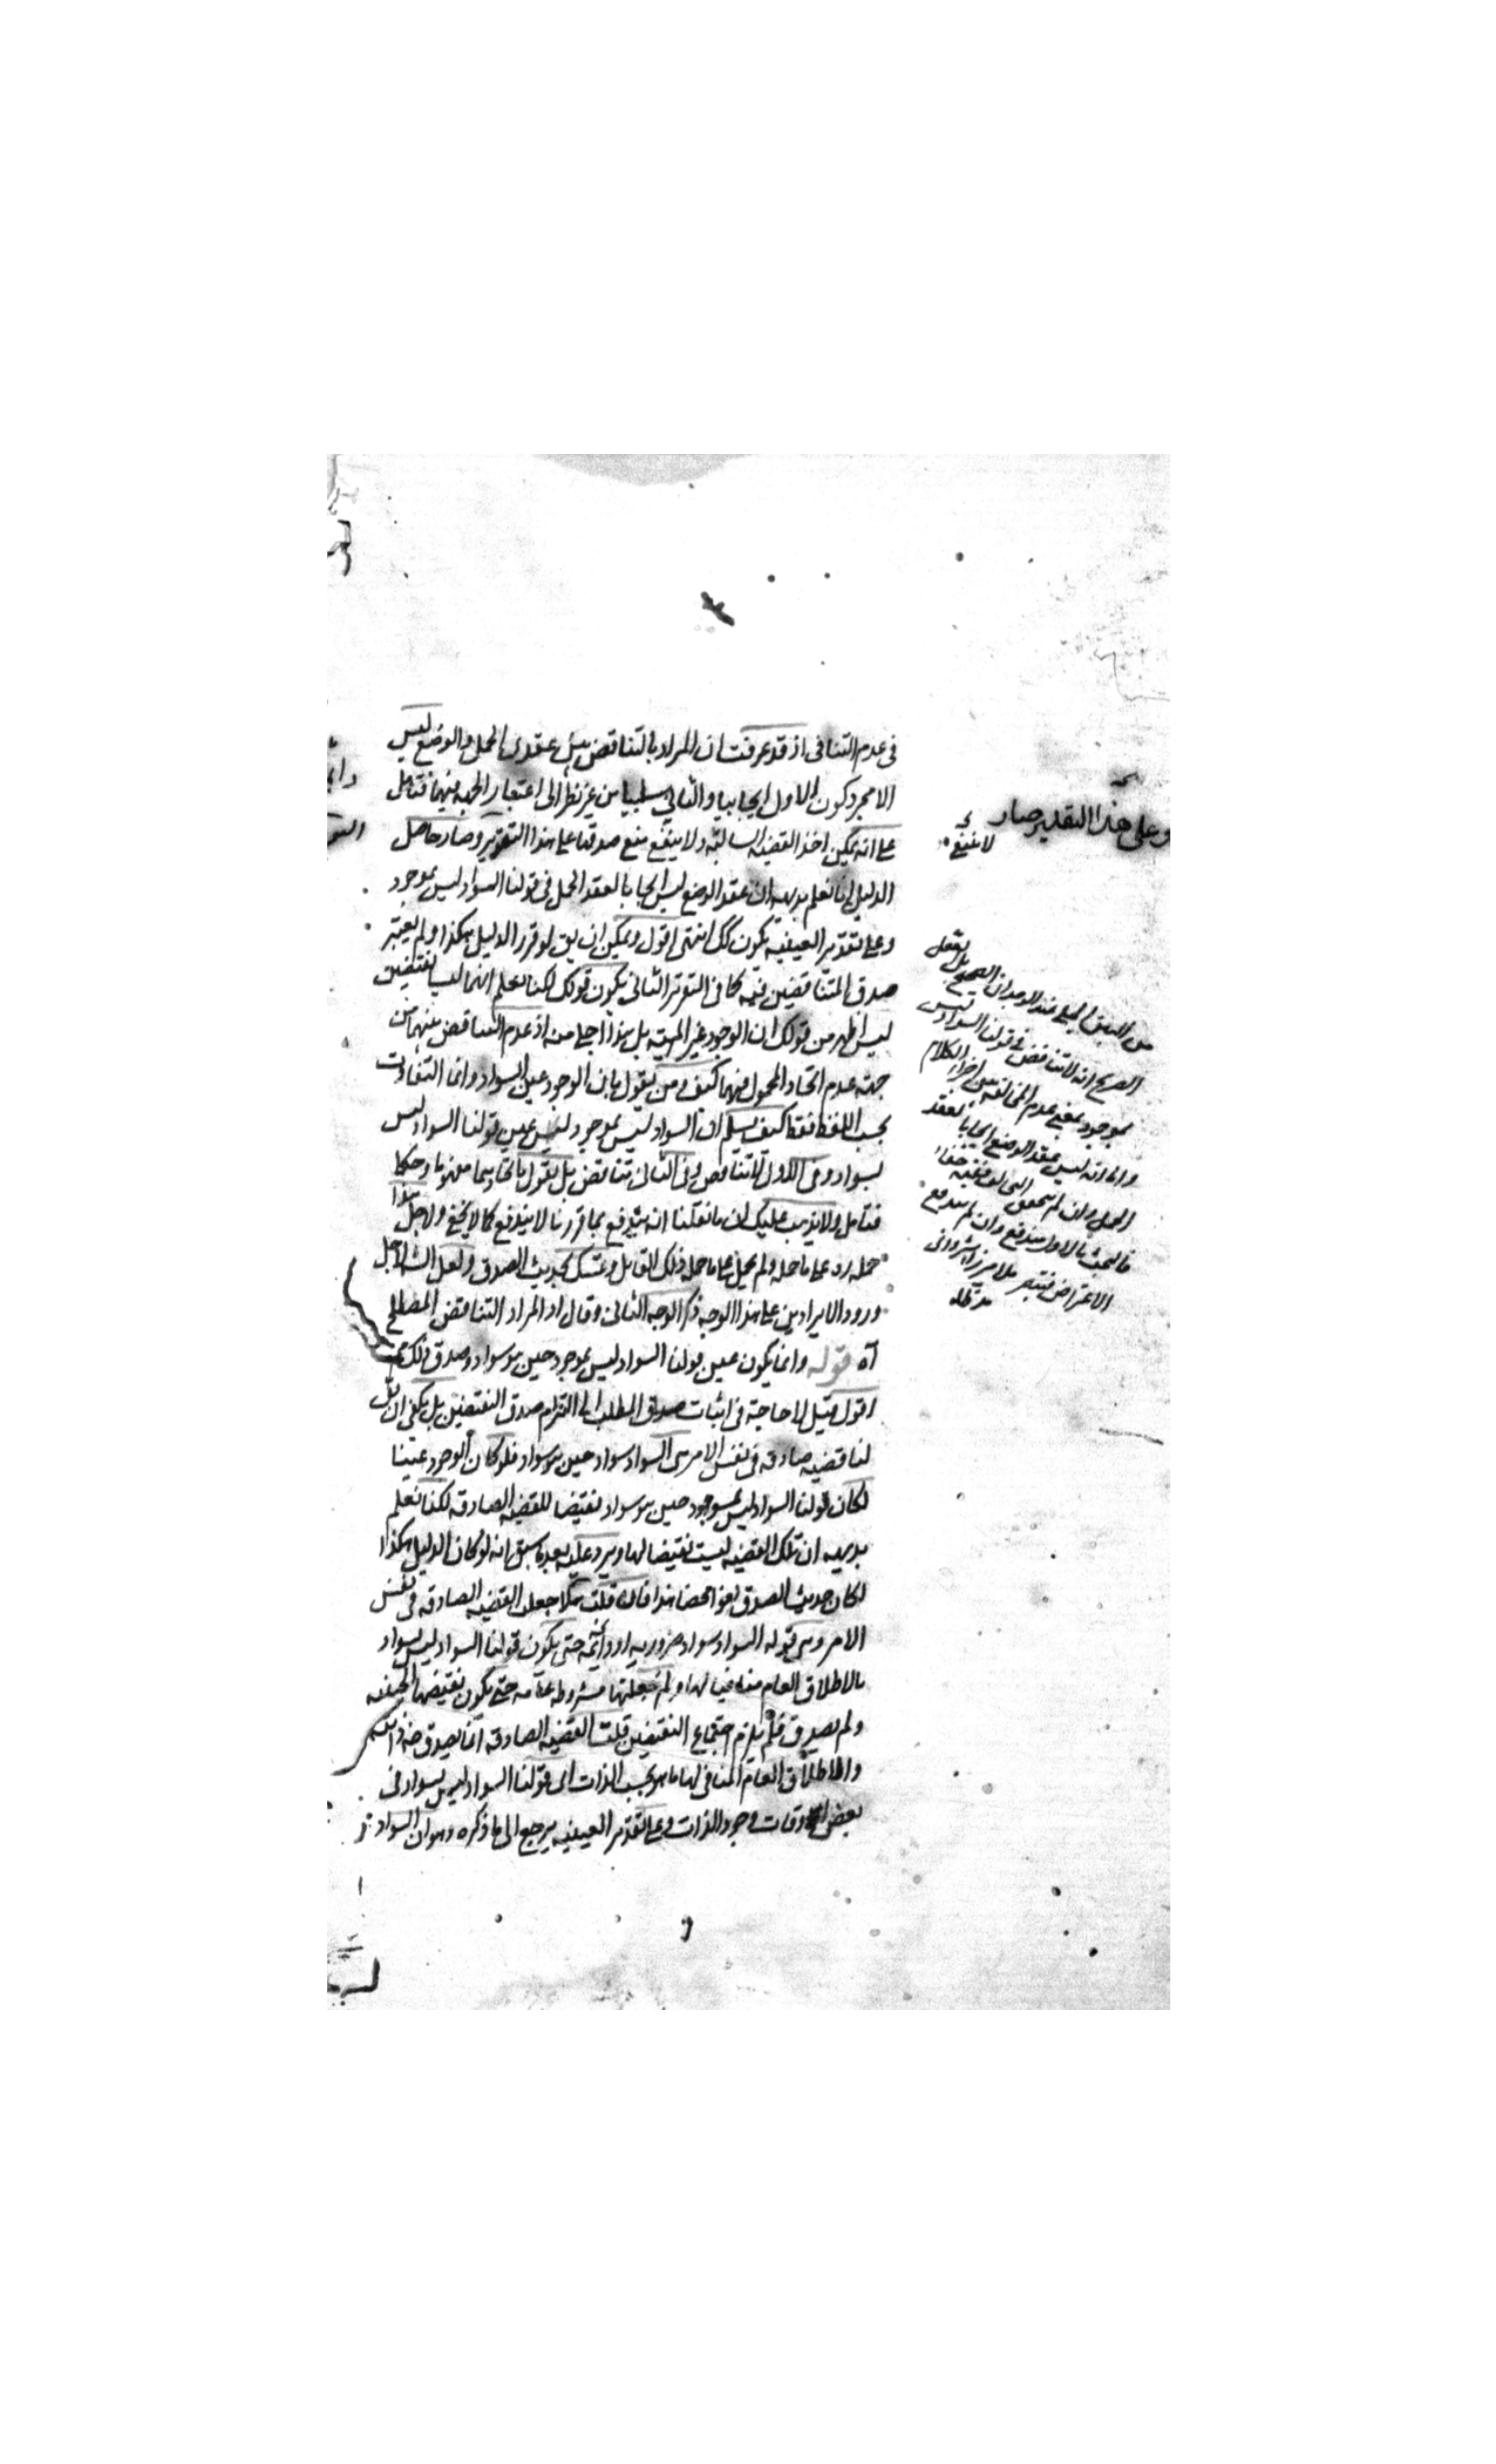 في عدم التنافي اذ قد عرفت ان المراد بالتناقض بين عقدى الحمل والوضع ليس
الا مجرد كون الاول ايجابيا والثاني سلبيا من غير نظر الى اعتبار الجهة فيهما فتامل
على انه يمكن اخذ القضيه السالبة ولا ينفع منع صدقها على هذا التقدير وصار حاصل
الدليل انا نعلم بديهه ان عقد الوضع ليس ايجابا لعقد الحمل في قولنا السواد ليس بموجود
وعلى تقدير العينية يكون كك انتهى اقول ويمكن ان يق لو قرر الدليل هكذا ولم يعتبر
صدق المتناقضين فيه كما في التقرير الثاني يكون قولك لكنا نعلم انهما ليسا بنقيضين
ليس اظهر من قولك ان الوجود غير المهية بل هذا اجلى منه اذ عدم التناقض بينهما من
جهة عدم اتحاد المحمول فيهما كيف ومن يقول بان الوجود عين السواد وانما التفاوت
بحسب اللفظ فقط كيف يسلم ان السواد ليس بموجود ليس عين قولنا السواد ليس
بسواد وفي الاول لا تناقض وفي الثاني تناقض بل يقول باتحادهما مفهوما وحكما
فتامل ولا يذهب عليك ان ما نقلنا انه يندفع بما قررنا لا يندفع كما لا يخفى ولاجل هذا
حمله ره على ما حمله ولم يحمل على ما حمله ذلك القائل وتمسك بحديث الصدق ولعل الش لاجل
ورود الايرادين على هذا الوجه ذكر الوجه الثاني وقال او المراد التناقض المصطلح
آه قوله وانما يكون عين قولنا السواد ليس بموجود حين هو سواد وصدق ذلك مم
اقول قيل لا حاجة في اثبات صدق المطلب الى التزام صدق النقيضين بل يكفى ان يق
لنا قضيه صادقه في نفس الامر هى السواد سواد حين هو سواد فلو كان الوجود عينا
لكان قولنا السواد ليس بموجود حين هو سواد نقيضا للقضيه الصادقه لكنا نعلم
بديهه ان تلك القضيه ليست نقيضا لها ويرد عليه بعد ما سبق انه لو كان الدليل هكذا
لكان حديث الصدق لغوا محضا هذا فان قلت هلا جعل القضيه الصادقه في نفس
الامر وهى قوله السواد سواد ضروريه او دائمه حتى يكون قولنا السواد ليس بسواد
بالاطلاق العام منافيا لها ولم جعلتها مشروطه عامه حتى يكون نقيضها الحينيه
ولم يصدق فلم يلزم اجتماع النقيضين قلت القضيه الصادقه انما يصدق ضه ذاتيه
والاطلاق العام المنافى لها ما هو بحسب الذات اى قولنا السواد ليس بسواد في
بعض اوقات وجود الذات وعلى تقدير العينيه يرجع الى ما ذكره وهو ان السواد
وعلى هذا التقدير صار
لا ينفع
من البين الجلى عند الوجدان الصحيح بل العقل
الصريح انه لا تناقض في قولنا السواد ليس
بموجود بمعنى عدم المخالفة بين اجزاء الكلام
واما انه ليس عقد الوضع ايجابا لعقد
الحمل وان لم يتحقق التخالف ففيه خفاء
فالبحث بالاول مندفع وان لم يندفع
الاعتراض فتبصر ملا ميرزا شرواني
مد ظله